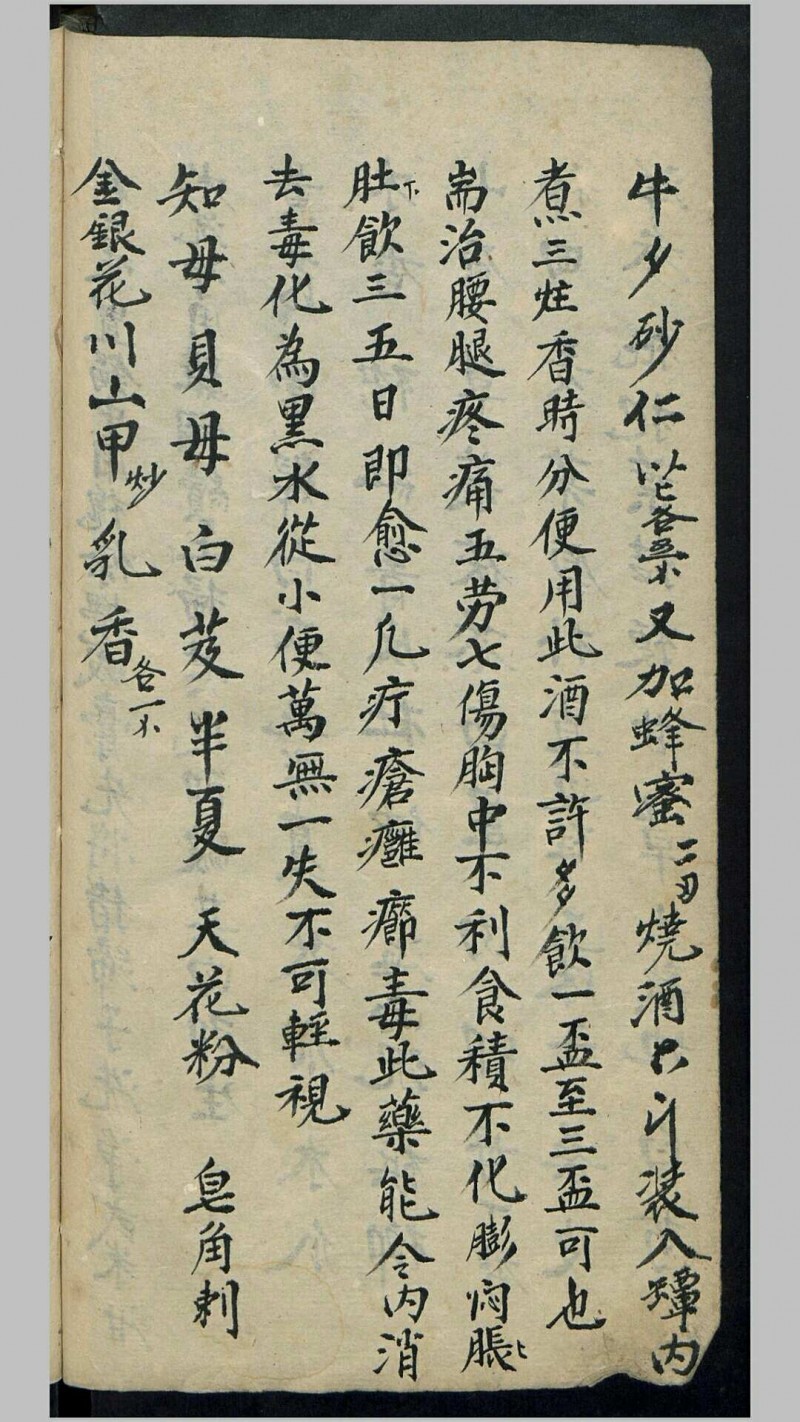 牛夕砂仁以上各 又加蜂蜜一 燒酒 斗装入罈内
煮三炷香時分便用此酒不許多飲一盃至三盃可也
耑治腰腿疼痛五劳七傷胸中不利食積不化膨悶脹
肚下飲三五日即愈一凡疔瘡癰癤毒此藥能令内消
去毒化為黑水從小便萬無一失不可輕視
知母貝母白芨半夏 天花粉 皂角刺
金銀花川山甲炒乳香各一